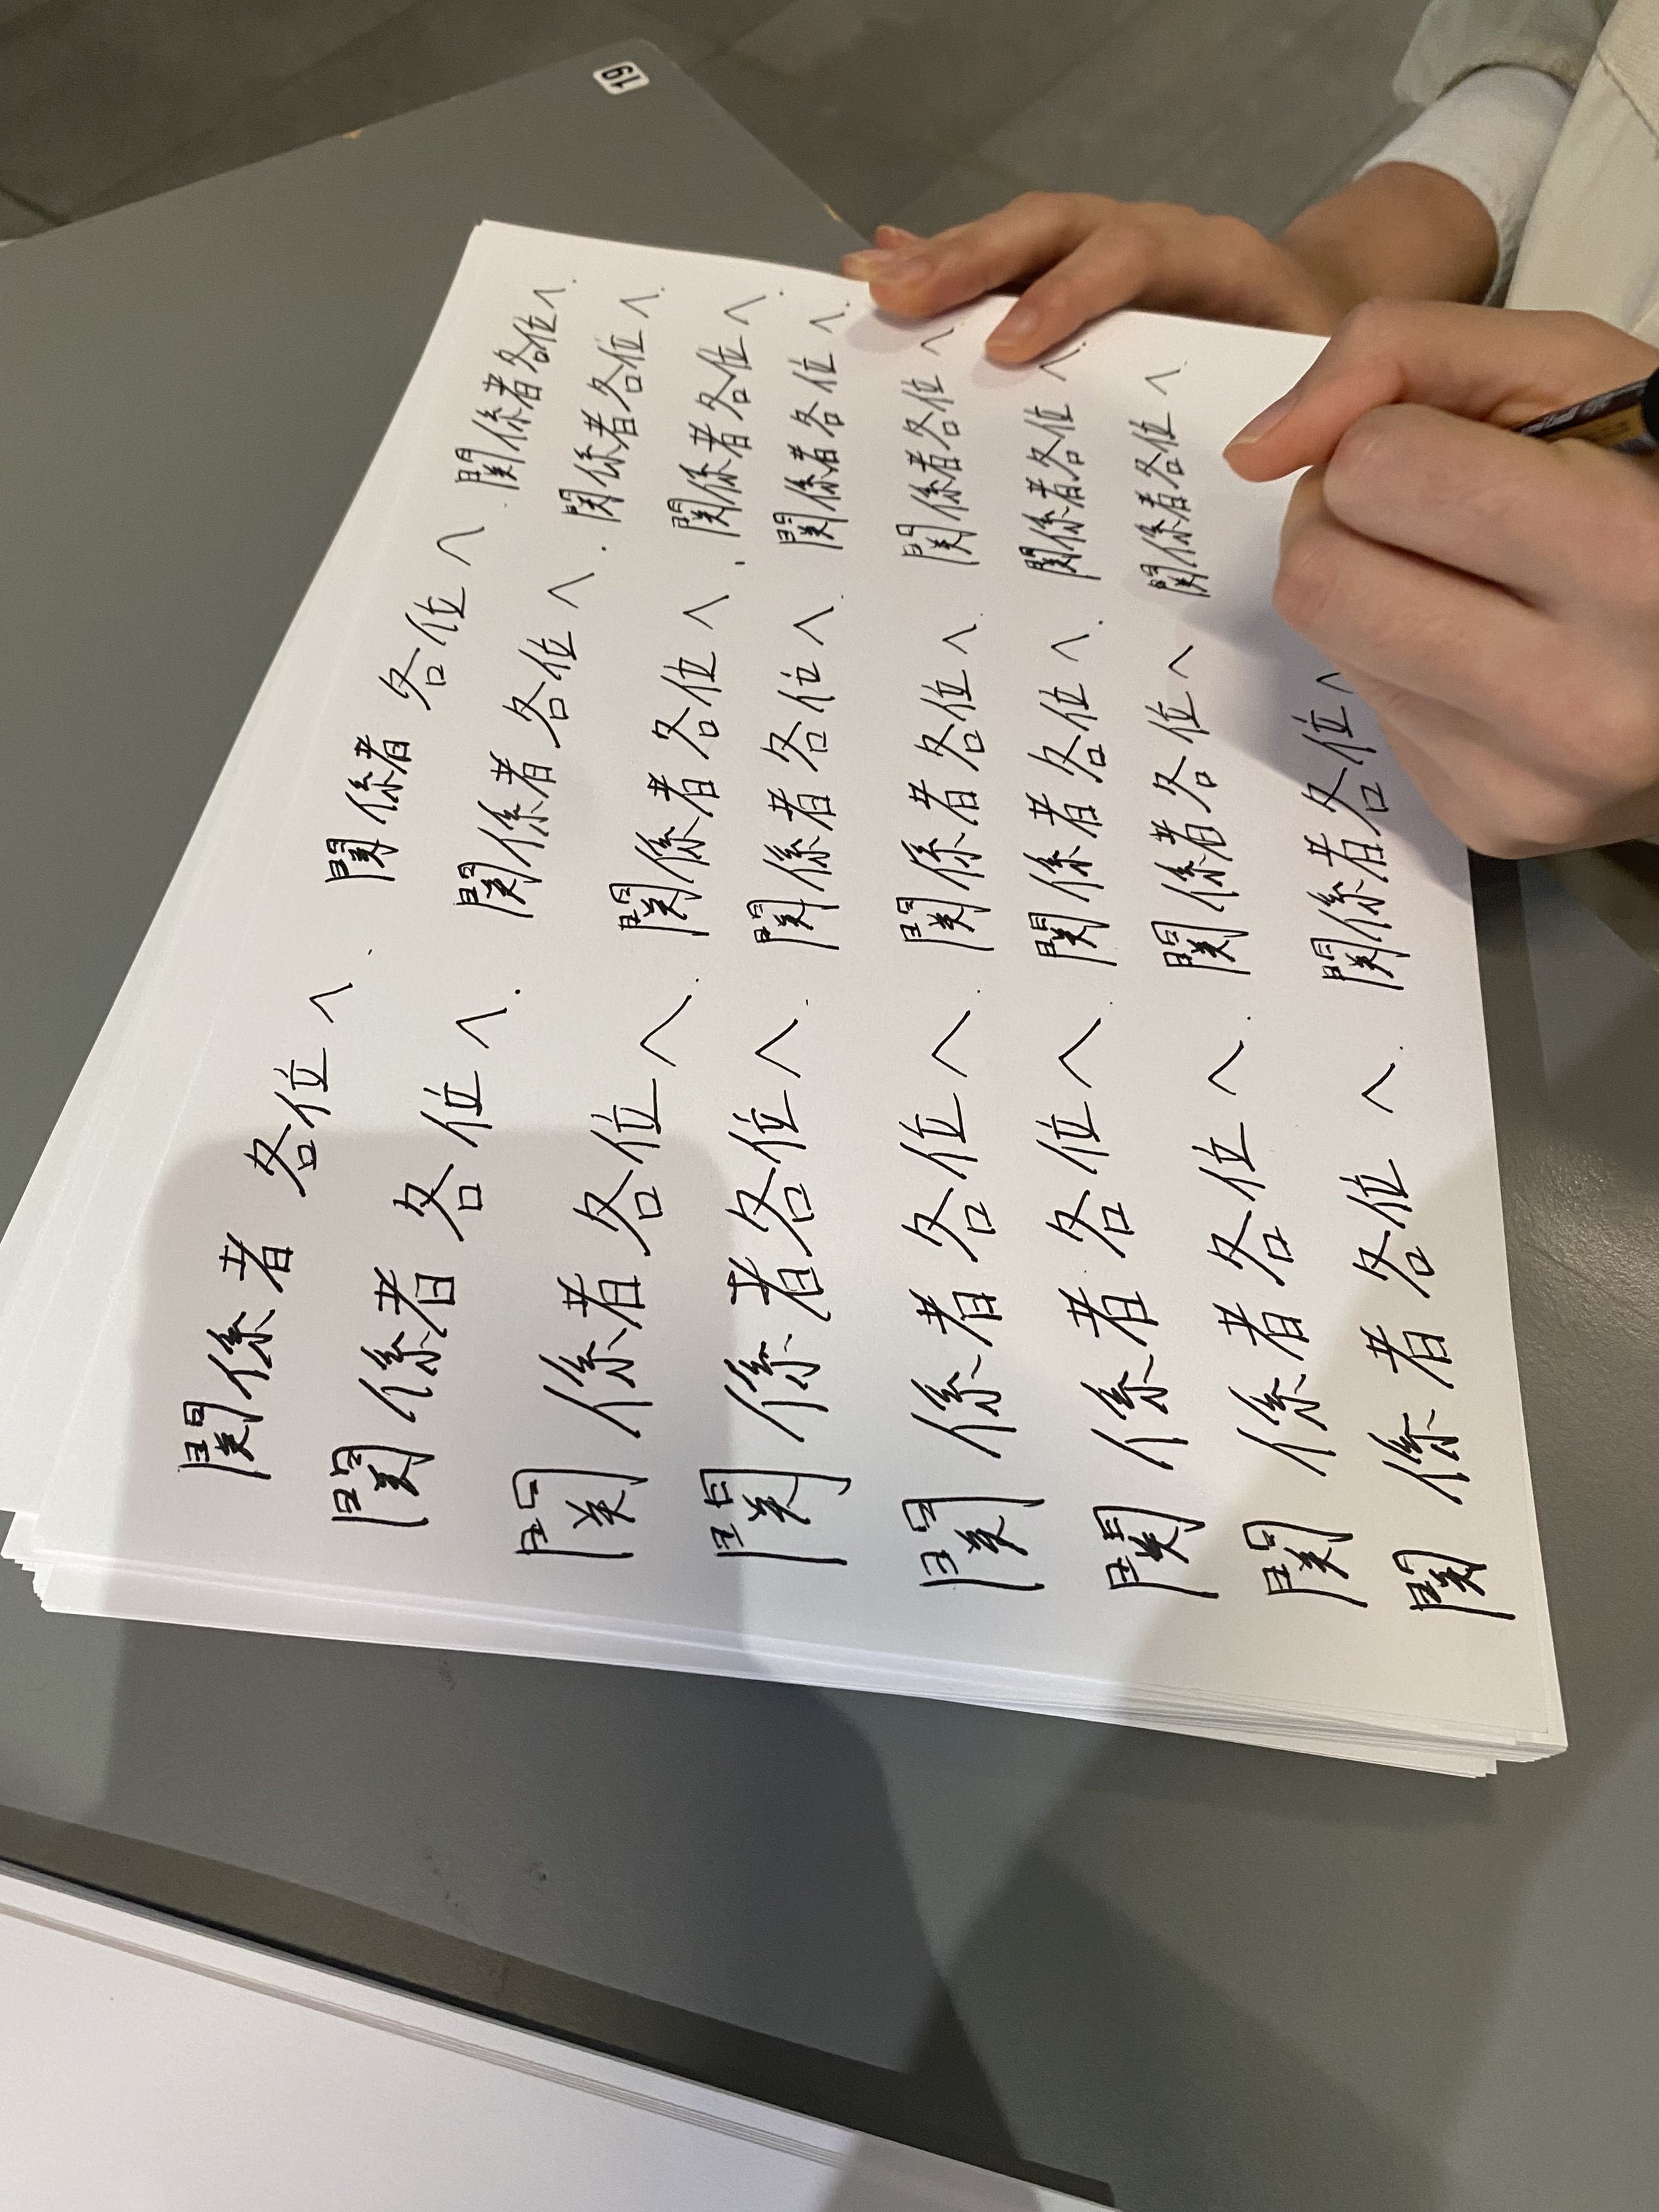 関係者各位へ.関係者各位へ.関係者各位へ.
関係者各位へ.関係者各位へ.関係者各位へ.
関係者各位へ.関係者各位へ.関係者各位へ.
関係者各位へ.関係者各位へ.関係者各位へ.
関係者各位へ.関係者各位へ.関係者各位へ.
関係者各位へ.関係者各位へ.関係者各位へ.
関係者各位へ.関係者各位へ 関係者各位へ.
関係者各位へ.関係者各位へ
19